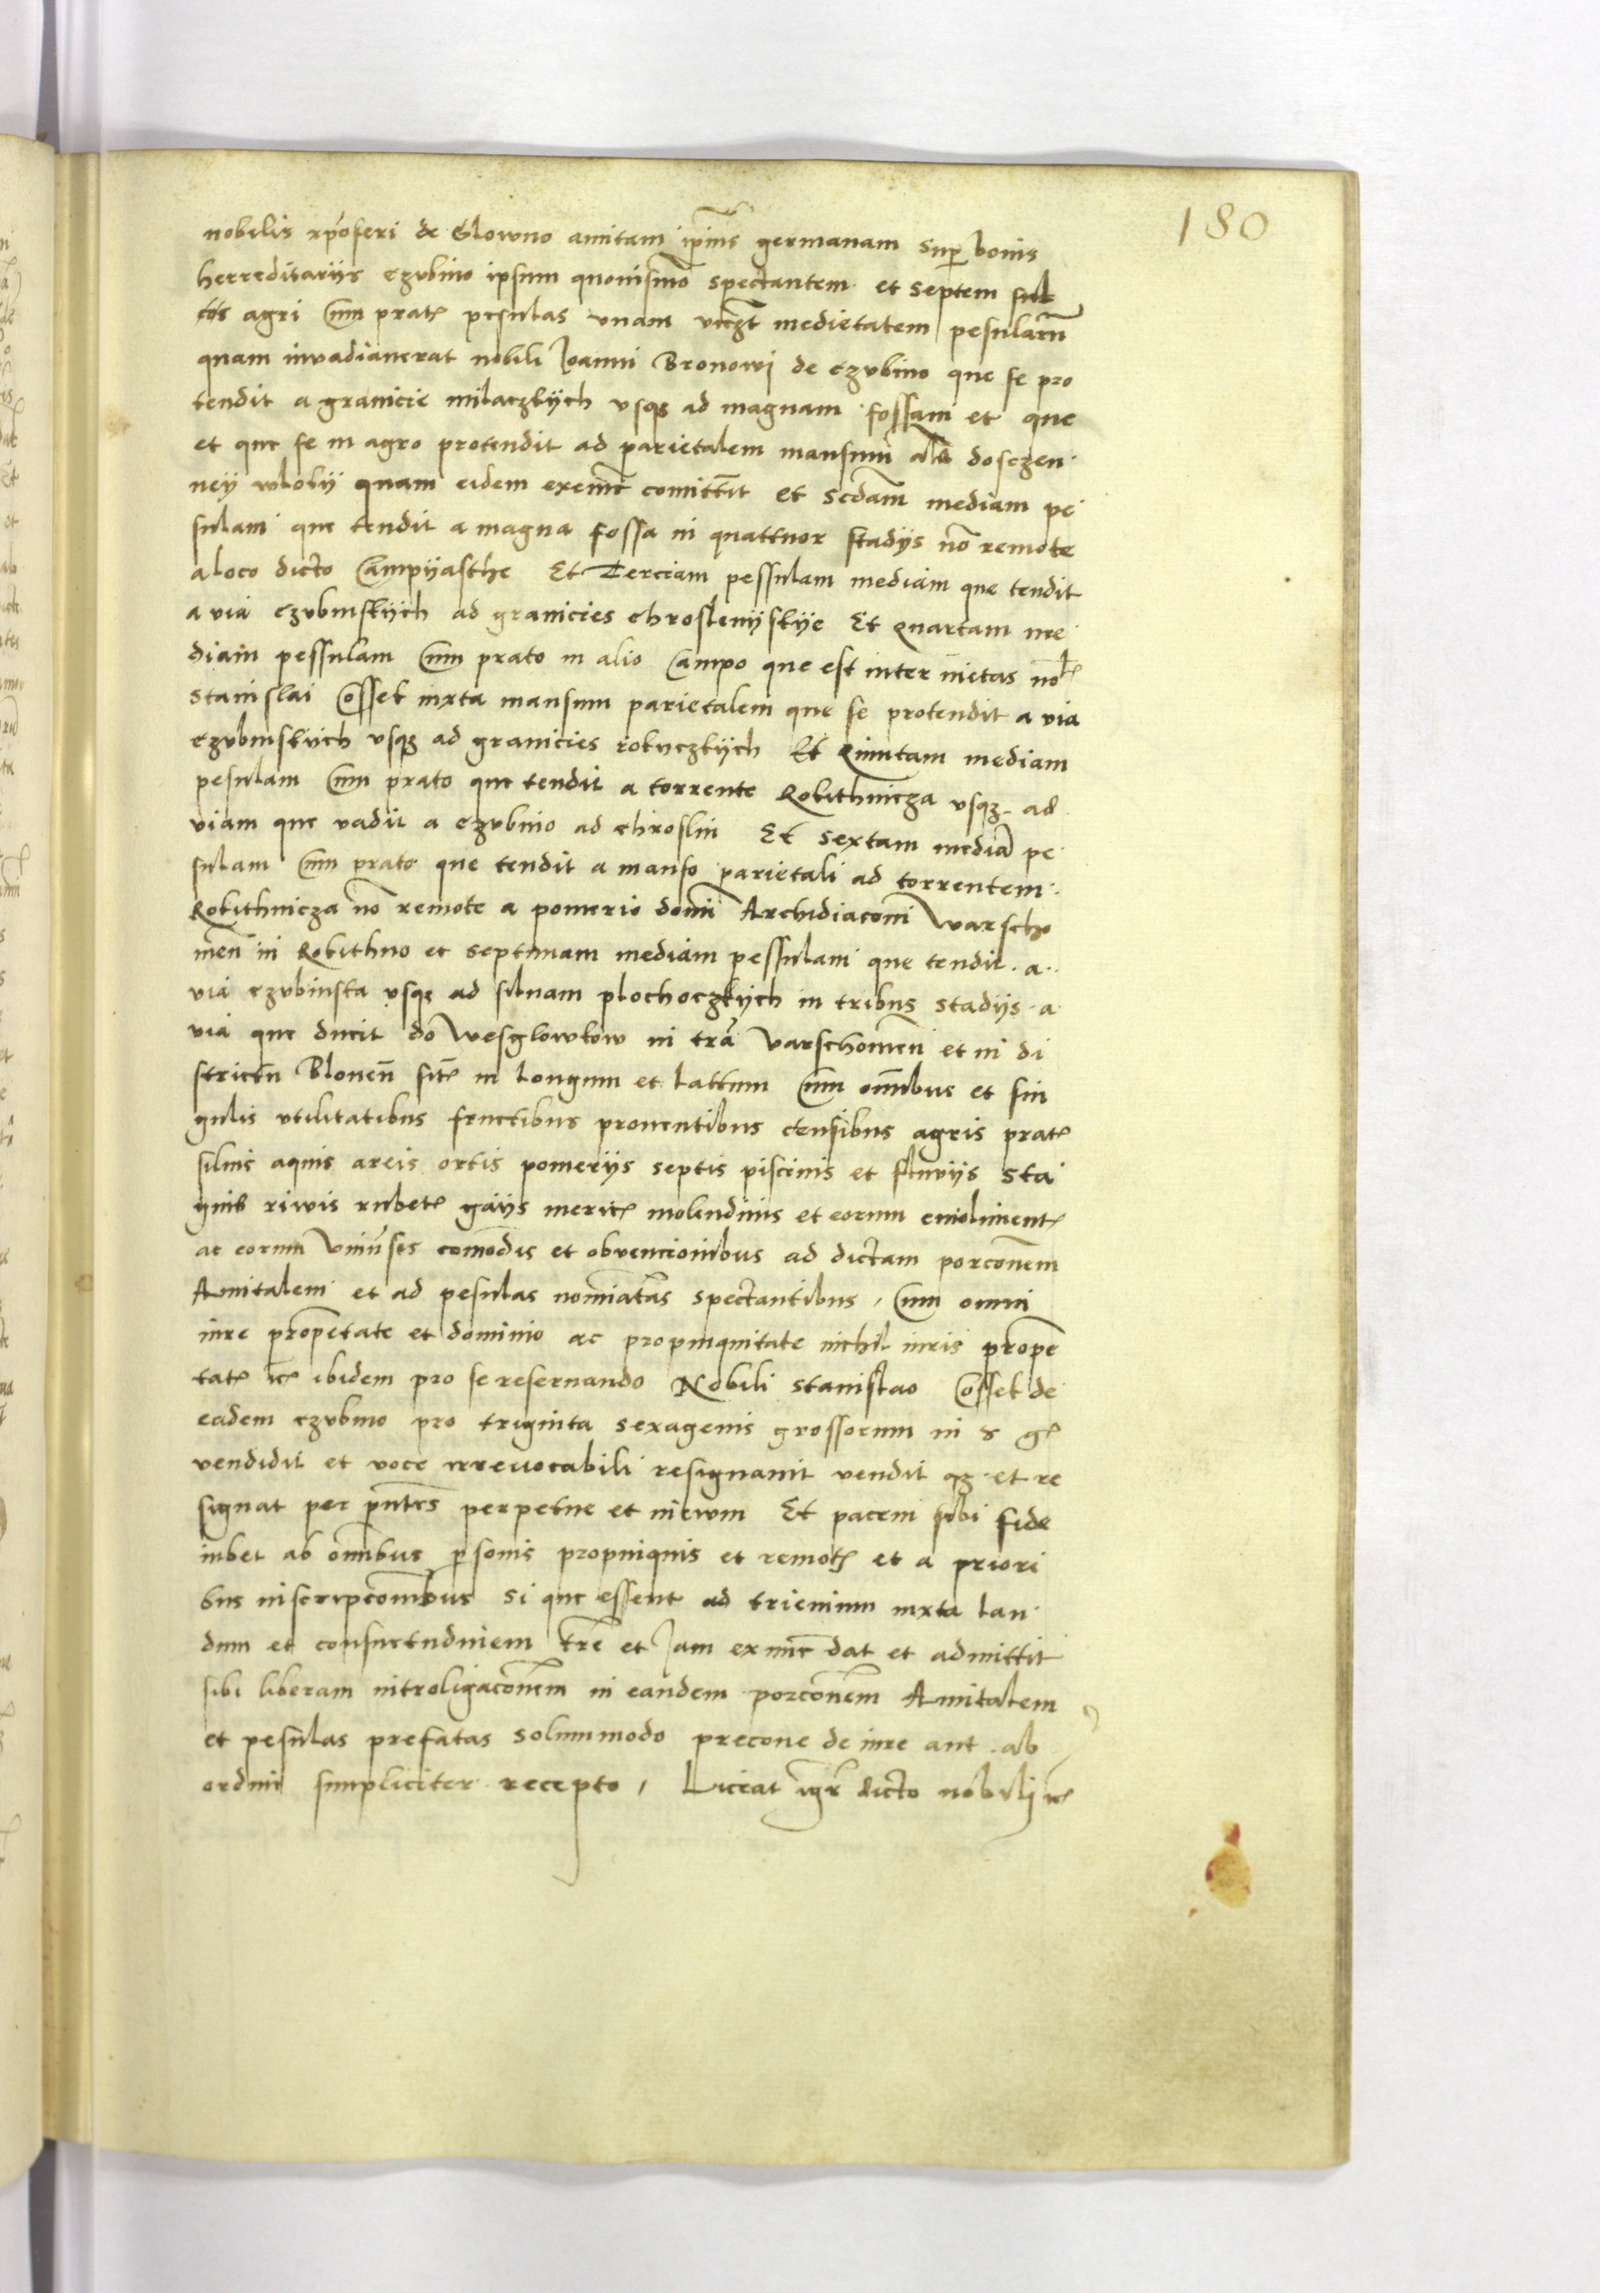 180
nobilis xpoferi de Glowno amitam ipius germanam Super bonis
herreditariis czubino ipsum quouismo spectantem et septem sul
cos agri Cum prat pesulas vnam viczt medietatem pesularum
quam invadiauerat nobili Joanni Bronowi de czubino que se pro
tendit a granicie milaczkych vsqz ad magnam fossam et que
et que se in agro protendit ad parietalem mansum als dosczen
ney wloky quam eidem exemit comittit et Scdam mediam pe
sulam que tendit a magna fossa in quattuor stadijs no remote
a loco dicto Campyasthe Et Terciam pessulam mediam que tendit
a via czubinskych ad granicies chroslenyskye Et Quartam me
diam pessulam Cum prato in alio Campo que est inter metas nol
Stanislai Cosset iuxta mansum parietalem que se protendit a via
czubinskych vsqz ad granicies rokyczkych Et Quintam mediam
pesulam Cum prato que tendit a torrente Rokithnicza vsqz ad
viam que vadit a czubino ad chroslin Et Sextam media pe
sulam Cum prato que tendit a manso parietali ad torrentem
Rokithnicza no remote a pomerio domi Archidiaconi Warscho
uien in Rokithno et septimam mediam pessulam que tendit a
via czubinska vsqz ad siluam plochoczkych in tribus stadijs a
via que ducit do Wesglowkow in tra Varschouien et in di
strictu Blonen sit in Longum et Lattum Cum omibus et sin
gulis vtilitatibus fructibus prouentibus censibus agris prat
siluis aquis areis ortis pomerijs septis piscinis et fluvijs sta
gnis riwis rubet gays mericis molendinis et eorum emoliment
ac eorum vniuses comodis et obvencionibus ad dictam porconem
Amitalem et ad pesulas nomiatas spectantibus, Cum omni
iure propetate et dominio ac propinquitate nichil iuris prope
tat ic ibidem pro se reseruando Nobili Stanislao Cosset de
eadem czubino pro triginta sexagenis grossorum in gr
vendidit et voce irreuocabili resignauit vendit qz et re
signat per pntes perpetue et in ewm Et pacem sibi fide
iubet ab omibus personis propinquis et remotis et a priori
bus inscripcombus Si que essent ad trienium iuxta lau
dum et consuetudinem tre et Jam ex nuc dat et admittit
sibi liberam introligaconem in eandem porconem Amitalem
et pesulas prefatas solummodo precone de iure aut ab
ordine simpliciter recepto, Liceat igr dicto nobili